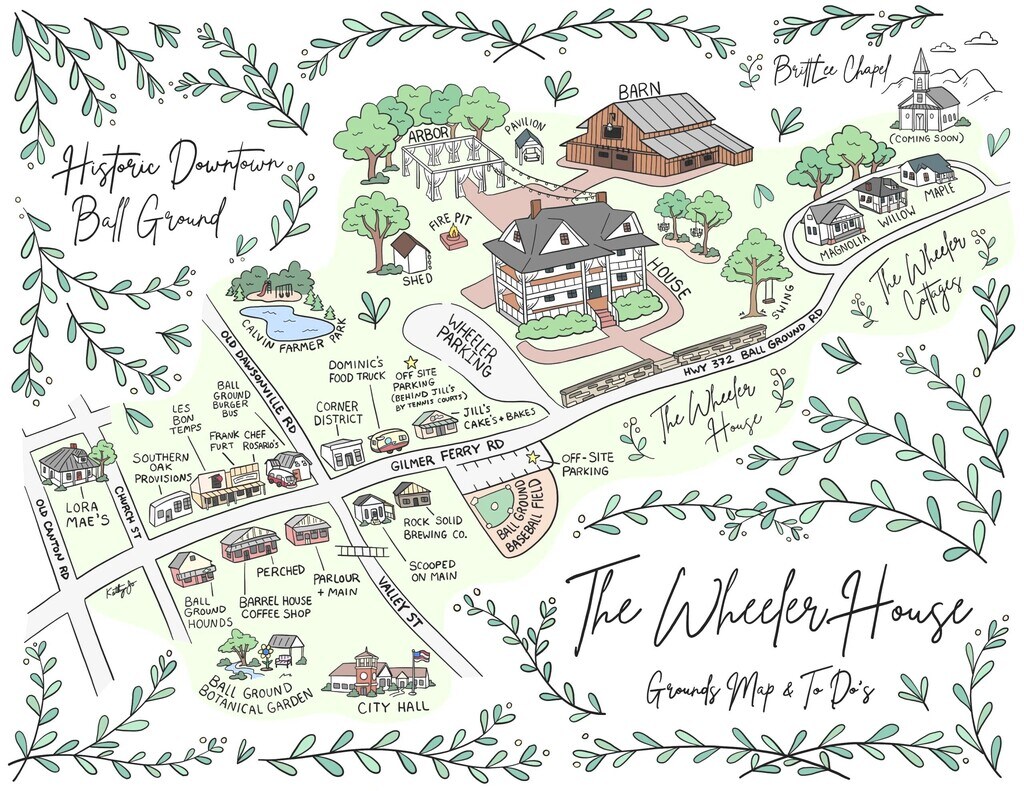 BrittLee Chapel
(COMING SOON)
Historic Downtown
Ball Ground
BARN
ARBOR
PAVILION
FIRE PIT
SHED
HOUSE
SWING
MAGNOLIA
WILLOW
MAPLE
The Wheeler
Cottages
CALVIN FARMER PARK
WHEELER
PARKING
HWY 372 BALL GROUND RD
The Wheeler
House
OLD DAWSONVILLE RD
DOMINIC'S
FOOD TRUCK
OFF SITE
PARKING
(BEHIND JILL'S
BY TENNIS COURTS)
JILL'S
CAKE'S + BAKES
CORNER
DISTRICT
GILMER FERRY RD
OFF-SITE
PARKING
BALL GROUND
BASEBALL FIELD
BALL
GROUND
BURGER
BUS
LES
BON
TEMPS
FRANK
FURT
CHEF
ROSARIO'S
SOUTHERN
OAK
PROVISIONS
LORA
MAE'S
OLD CANTON RD
CHURCH ST
ROCK SOLID
BREWING CO.
SCOOPED
ON MAIN
PARLOUR
+ MAIN
PERCHED
BARREL HOUSE
COFFEE SHOP
BALL
GROUND
HOUNDS
VALLEY ST
Kathy Jo
BALL GROUND
BOTANICAL GARDEN
CITY HALL
The Wheeler House
Grounds Map & To Do's